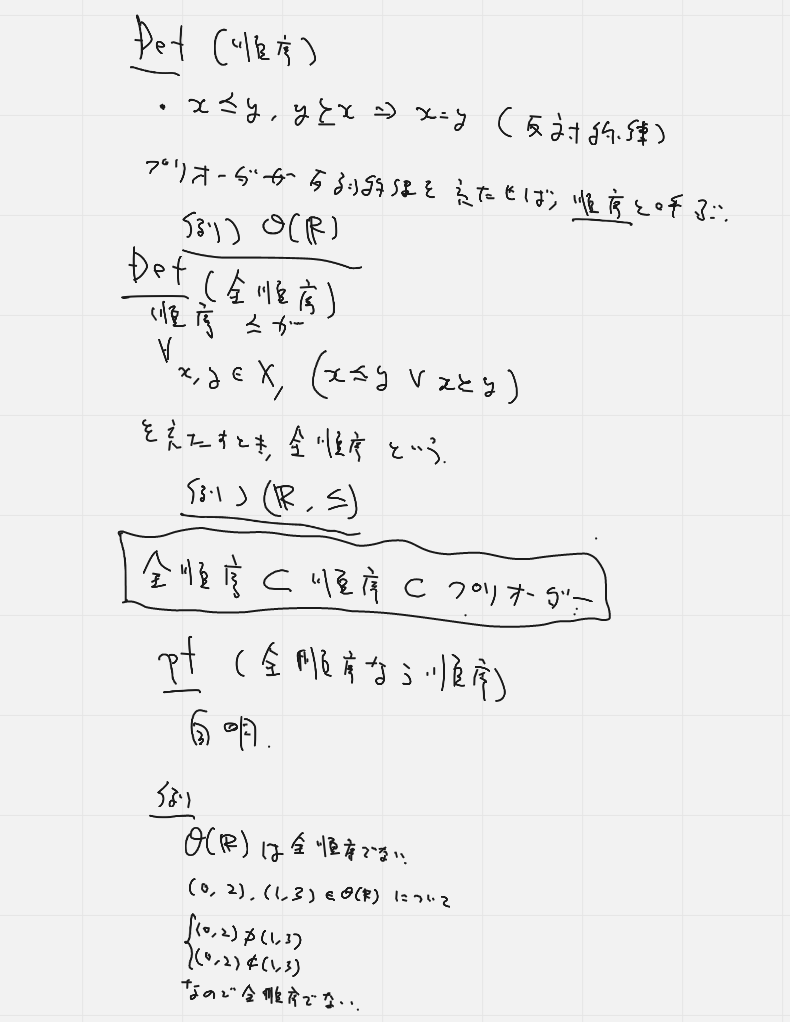 Def (順序)
・ x ≤ y, y ≥ x ⇒ x = y (反対称律)
プリオーダーが反対称律を満たせば, 順序と呼ぶ.
例) O(ℝ)
Def (全順序)
順序 ≤ が
∀x, y ∈ X, (x ≤ y ∨ x ≥ y)
を満たすとき, 全順序という.
例) (ℝ, ≤)
全順序 ⊂ 順序 ⊂ プリオーダー
pf (全順序ならば順序)
自明.
例
O(ℝ) は全順序でない.
(0, 2), (1, 3) ∈ O(ℝ) について
(0, 2) ⊅ (1, 3)
(0, 2) ⊄ (1, 3)
なので全順序でない.